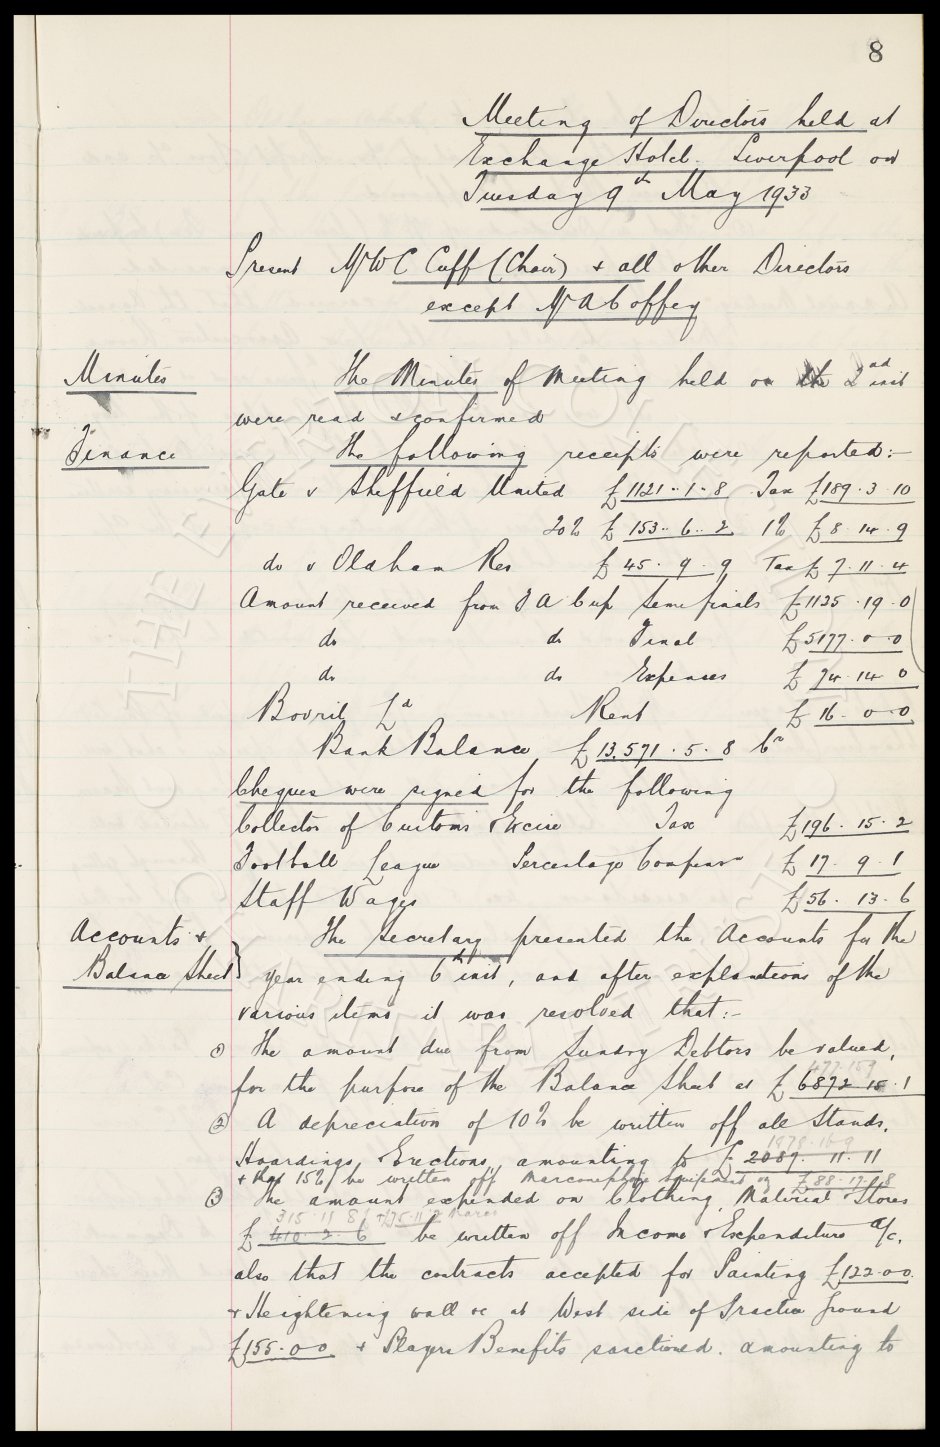 8
Meeting of Directors held at
Exchange Hotel. Liverpool on
Tuesday 9th May 1933
Present Mr W C Cuff (Chair) + all other Directors
except Mr A Coffey
Minutes
The Minutes of Meeting held on 2nd inst
were read & confirmed
Finance
The following receipts were reported:-
Gate v Sheffield United £1121..1.8 Tax £189.3.10
20% £153..6..2 1% £8.14.9
do v Oldham Res £45.9.9 Tax £7.11.4
Amount received from F A Cup Semi finals £1125.19.0
do do Final £5177.0.0
do do Expenses £74.14.0
Bovril Ld Rent £16.0.0
Bank Balance £13,571.5.8 Cr
Cheques were signed for the following
Collector of Customs & Excise Tax £196.15.2
Football League Percentage £17.9.1
Staff Wages £56.13.6
Accounts +
Balance Sheet}
The Secretary presented the Accounts for the
year ending 6th inst, and after explanations of the
various items it was resolved that:-
① The amount due from Sundry Debtors be valued,
for the purpose of the Balance Sheet at £6872.15.1
② A depreciation of 10% be written off all Stands,
Hoardings, Erections, amounting to £2089.11.11
1878.16.9
+ that 15% be written off Marconiphone Equipment £88.17.8
③ The amount expended on Clothing, Material & Stores
315.11.8
£410.2.6 be written off Income & Expenditure a/c,
also that the contracts accepted for Painting £122.0.0.
+ Heightening wall &c at West side of Practice Ground
£155.0.0 + Players Benefits sanctioned. amounting to